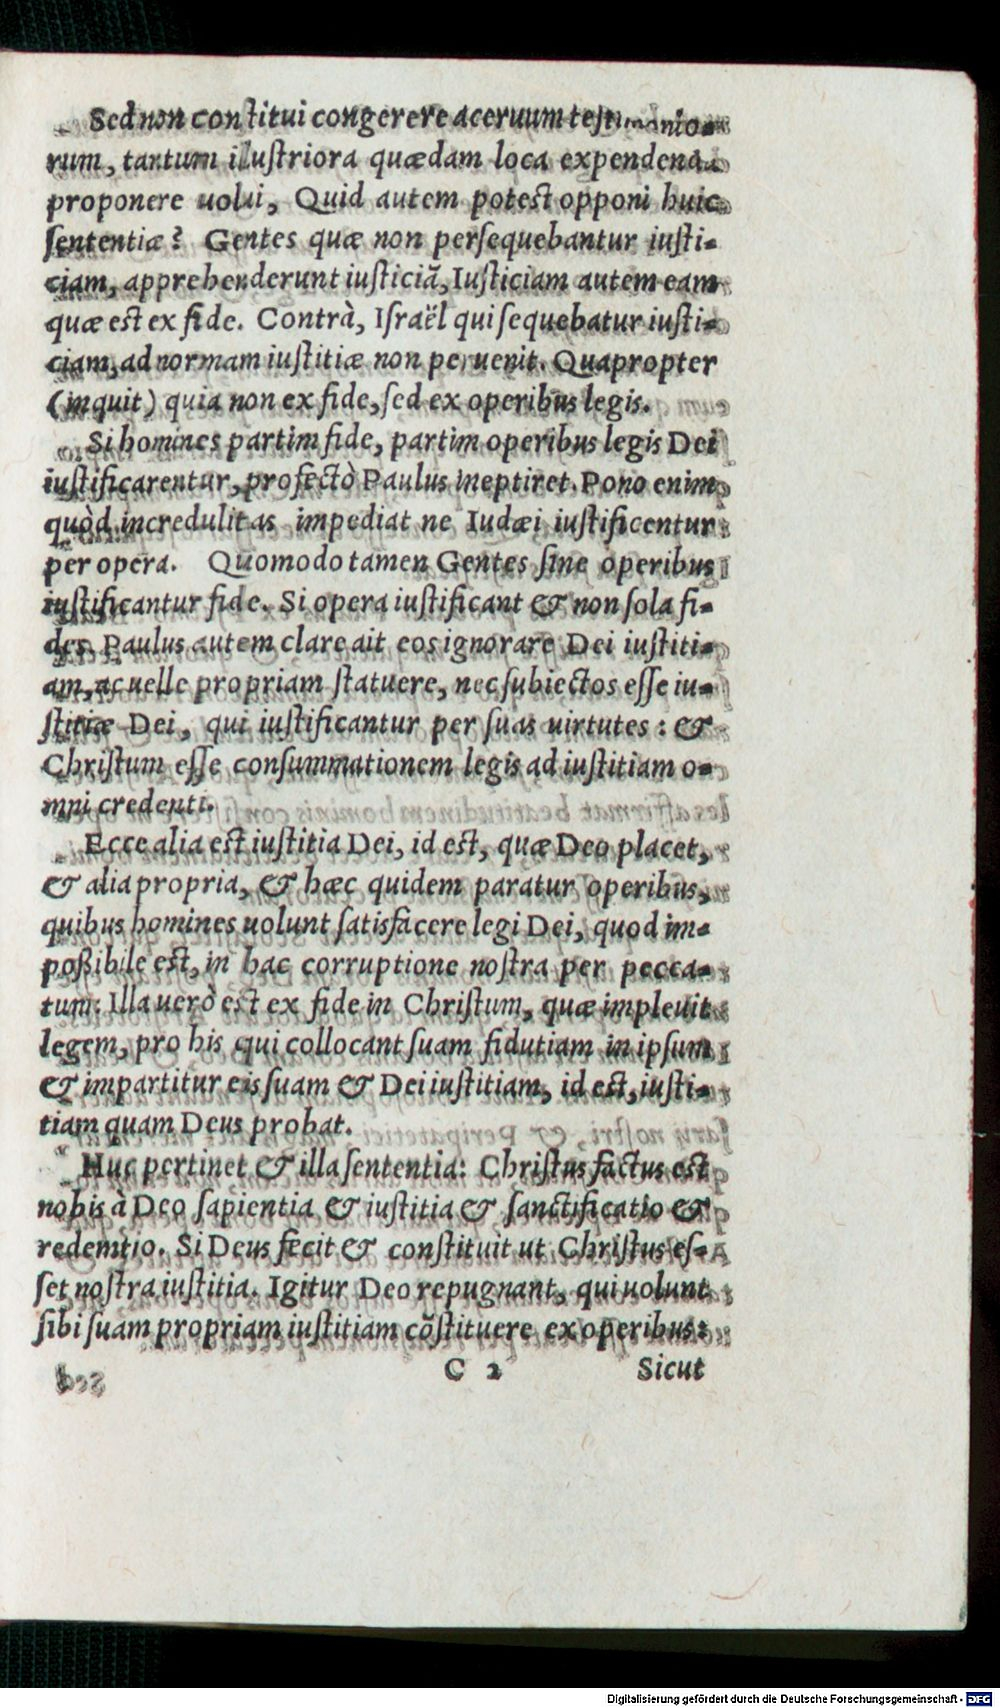 Sed non constitui congerere aceruum testimonio-
rum, tantum illustriora quædam loca expendenda
proponere uolui, Quid autem potest opponi huic
sententiæ? Gentes quæ non persequebantur iusti-
ciam, apprehenderunt iusticiã, Iusticiam autem eam
quæ est ex fide. Contrà, Israël qui sequebatur iusti-
ciam, ad normam iustitiæ non peruenit. Quapropter
(inquit) quia non ex fide, sed ex operibus legis.
Si homines partim fide, partim operibus legis Dei
iustificarentur, profectò Paulus ineptiret. Pono enim
quòd incredulitas impediat ne Iudæi iustificentur
per opera. Quomodo tamen Gentes sine operibus
iustificantur fide. Si opera iustificant & non sola fi-
des. Paulus autem clare ait eos ignorare Dei iustiti-
am, ac uelle propriam statuere, nec subiectos esse iu-
stitiæ Dei, qui iustificantur per suas uirtutes: &
Christum esse consummationem legis ad iustitiam o-
mni credenti.
Ecce alia est iustitia Dei, id est, quæ Deo placet,
& alia propria, & hæc quidem paratur operibus,
quibus homines uolunt satisfacere legi Dei, quod im-
poßibile est, in hac corruptione nostra per pecca-
tum: Illa uerò est ex fide in Christum, quæ impleuit
legem, pro his qui collocant suam fidutiam in ipsum
& impartitur eis suam & Dei iustitiam, id est, iusti-
tiam quam Deus probat.
Huc pertinet & illa sententia: Christus factus est
nobis à Deo sapientia & iustitia & sanctificatio &
redemtio. Si Deus fecit & constituit ut Christus es-
set nostra iustitia. Igitur Deo repugnant, qui uolunt
sibi suam propriam iustitiam cõstituere ex operibus:
C 2 Sicut
Digitalisierung gefördert durch die Deutsche Forschungsgemeinschaft - DFG